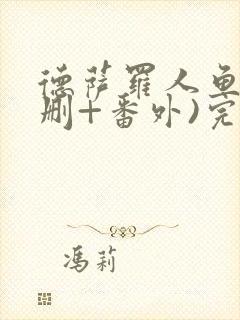 德萨罗人鱼
删+番外)完
冯莉